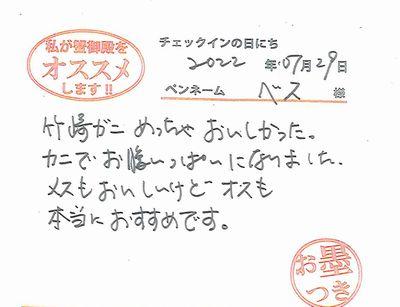 私が蟹御殿を
オススメ
します!!
チェックインの日にち
2022 年 07月 29日
ペンネーム ベス 様
竹崎ガニ めっちゃ おいしかった。
カニでお腹いっぱいになりました。
メスもおいしいけど オスも
本当におすすめです。
お墨
つき